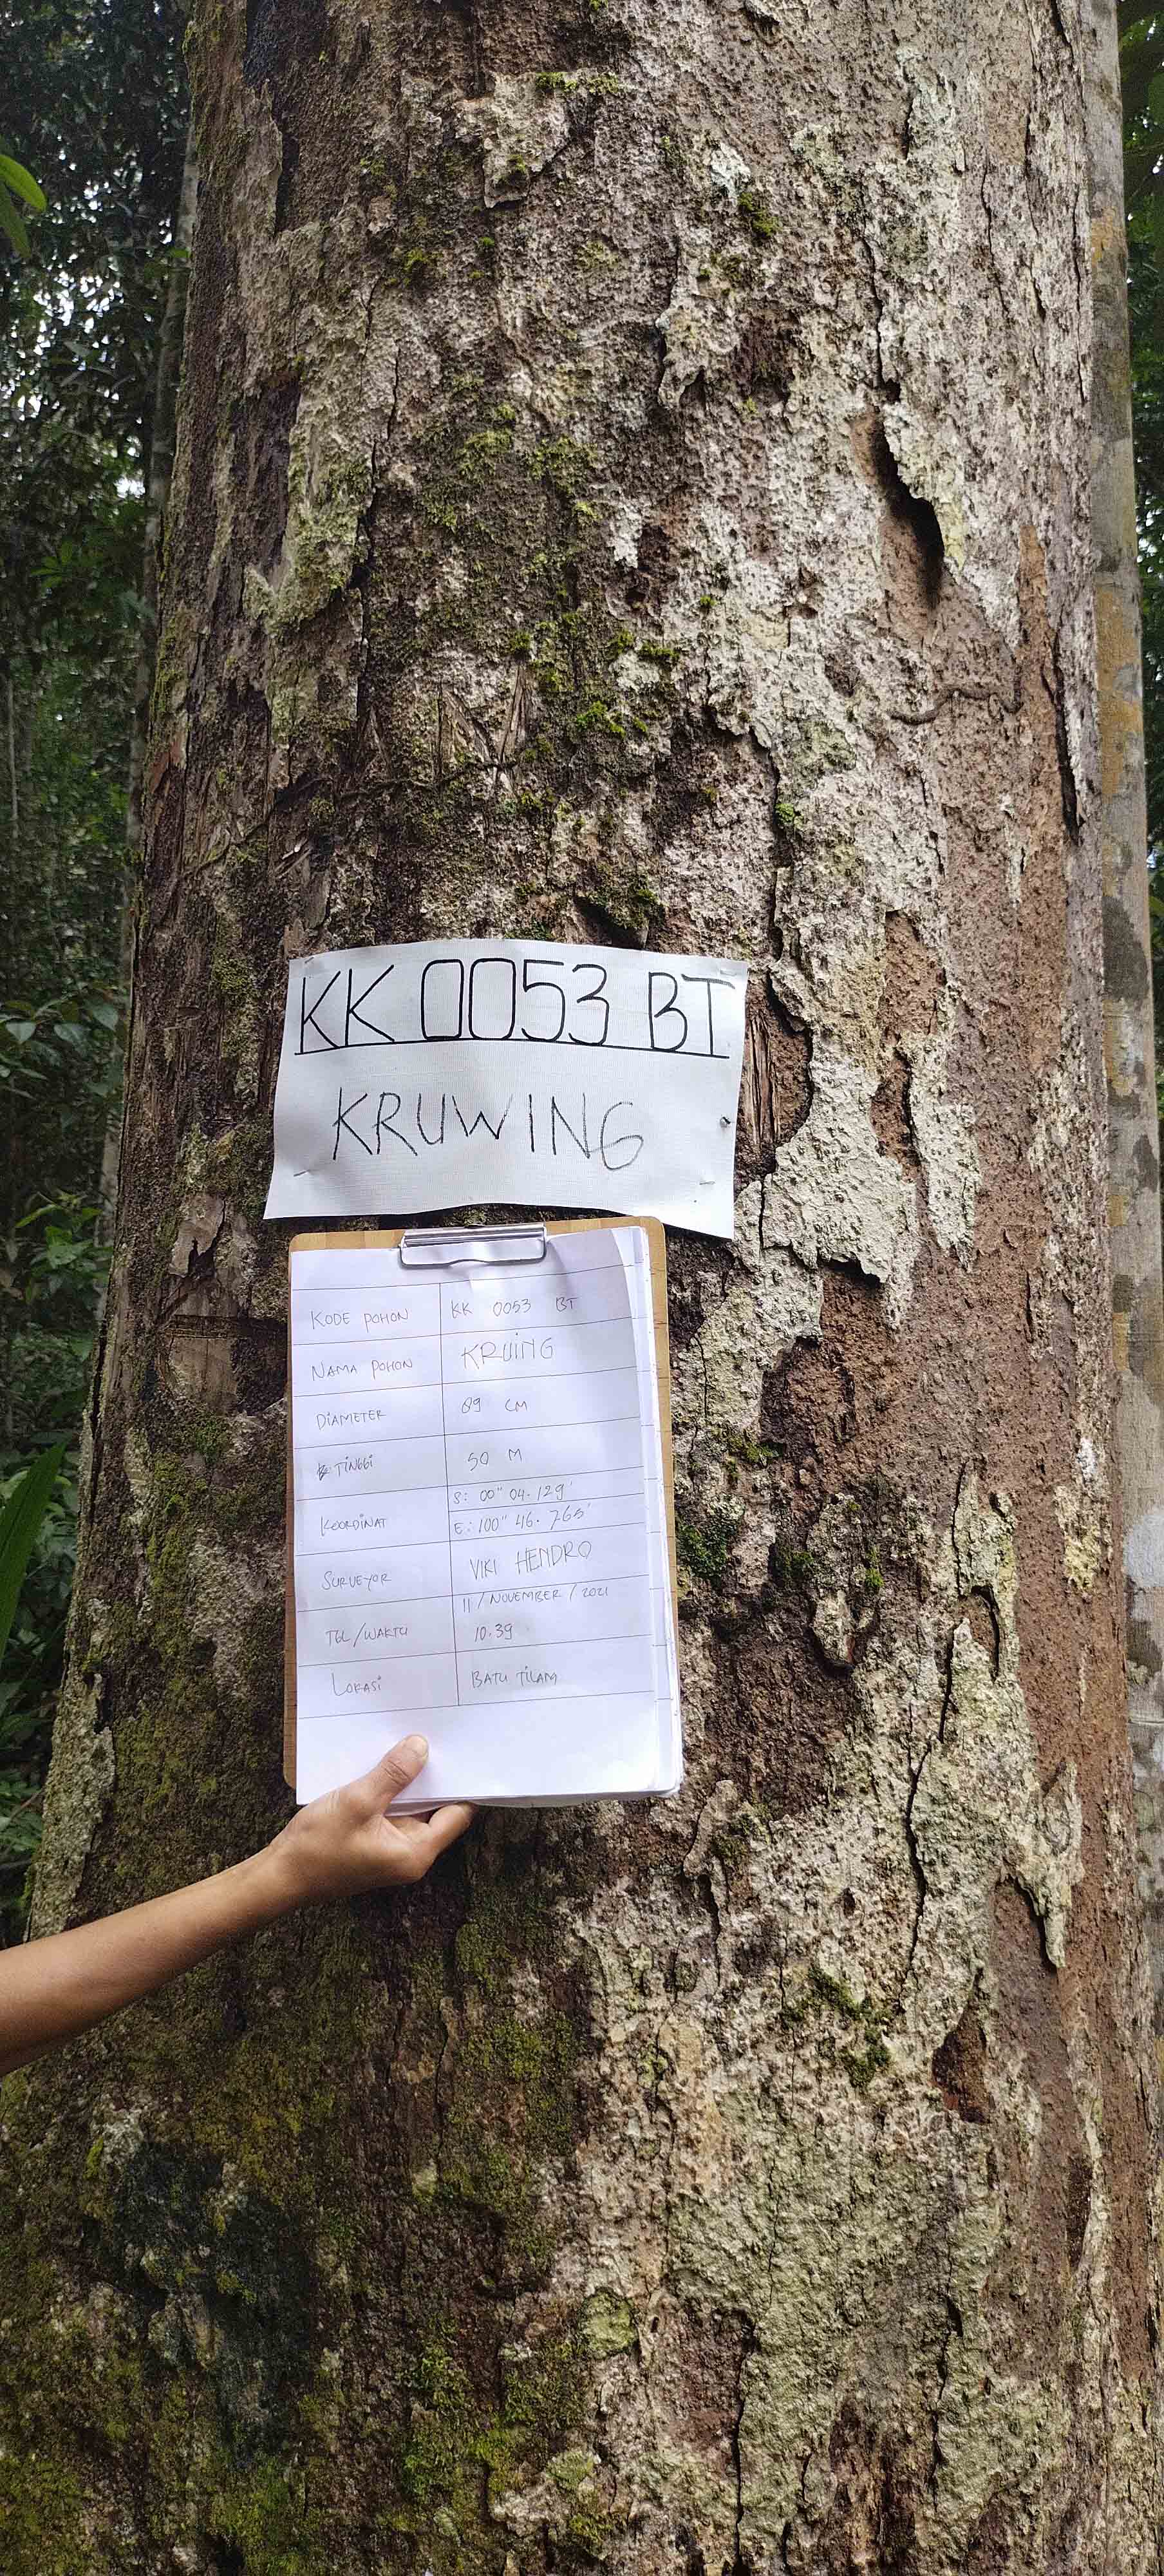 KK 0053 BT
KRUWING
KODE POHON KK 0053 BT
NAMA POHON KRUING
DIAMETER 89 CM
TINGGI 50 M
KOORDINAT S: 00" 04. 129'
E: 100" 46. 765'
SURVEYOR VIKI HENDRO
TGL/WAKTU 11/NOVEMBER/2021
10.39
LOKASI BATU TILAM